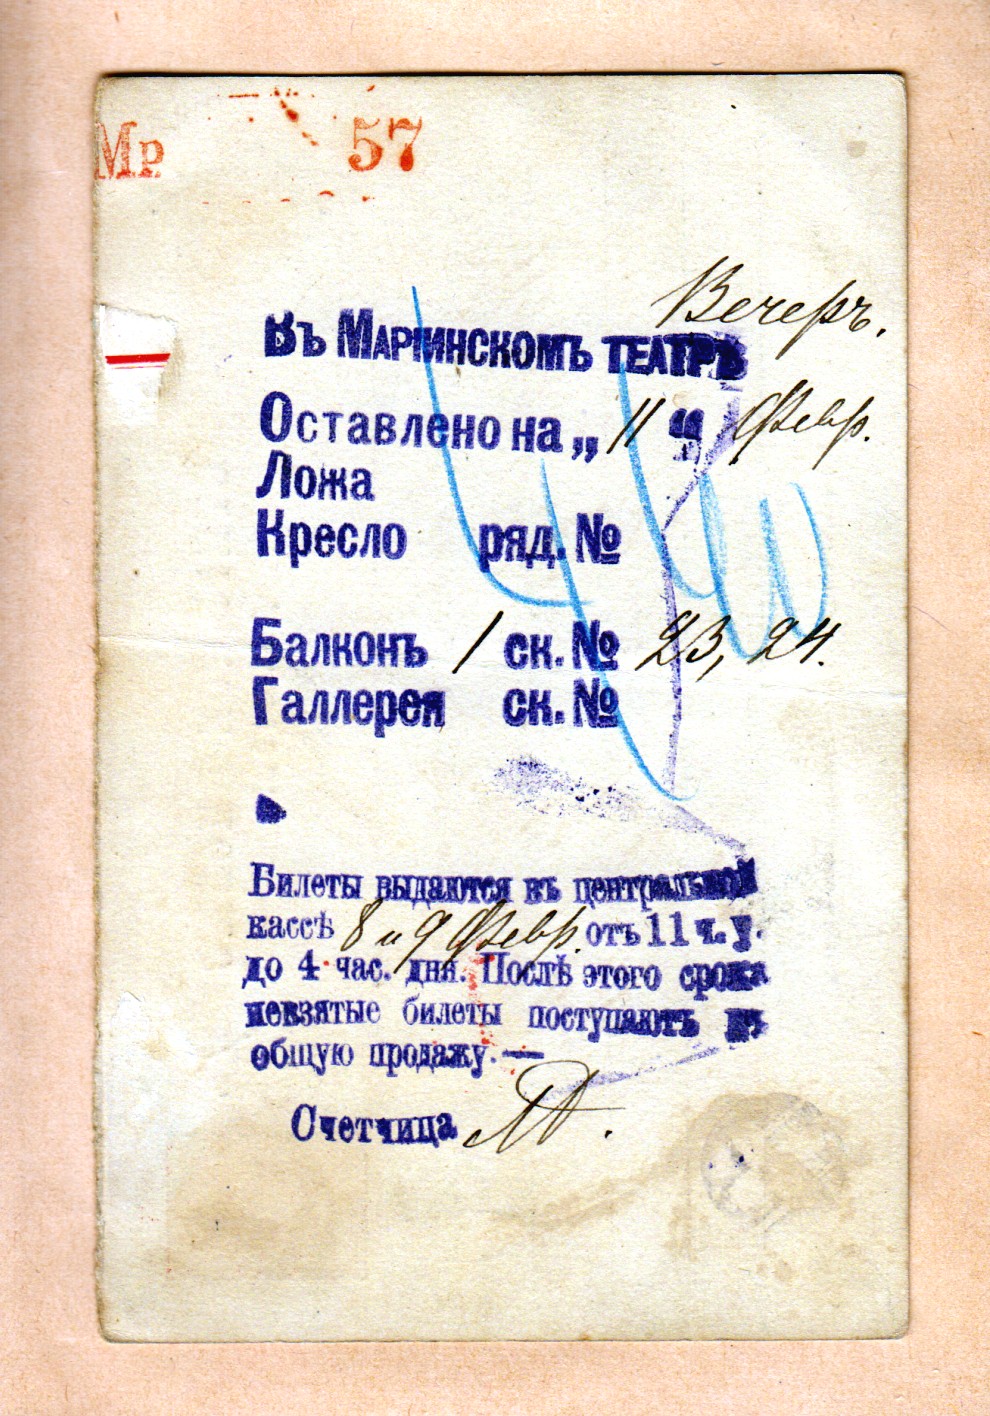 Мр. 57
Вечеръ.
Въ Маріинскомъ театрѣ
Оставлено на „11“ Февр.
Ложа
Кресло ряд. №
Балконъ 1 ск. № 23, 24.
Галлерея ск. №
Билеты выдаются въ центральной
кассѣ 8 и 9 Февр. отъ 11 ч. у.
до 4 час. дня. Послѣ этого срока
невзятые билеты поступаютъ въ
общую продажу. —
Счетчица